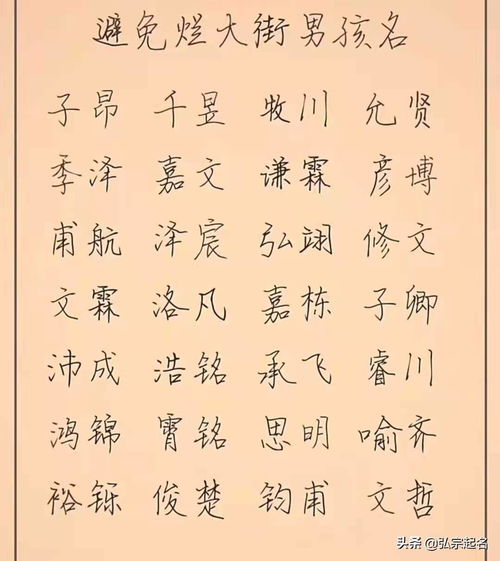 避免烂大街男孩名
子昂 千昱 牧川 允贤
季泽 嘉文 谦霖 彦博
甫航 泽宸 弘翊 修文
文霖 洛凡 嘉栋 子卿
沛成 浩铭 承飞 睿川
鸿锦 霄铭 思明 喻齐
裕铄 俊楚 钧甫 文哲
头条 @弘宗起名